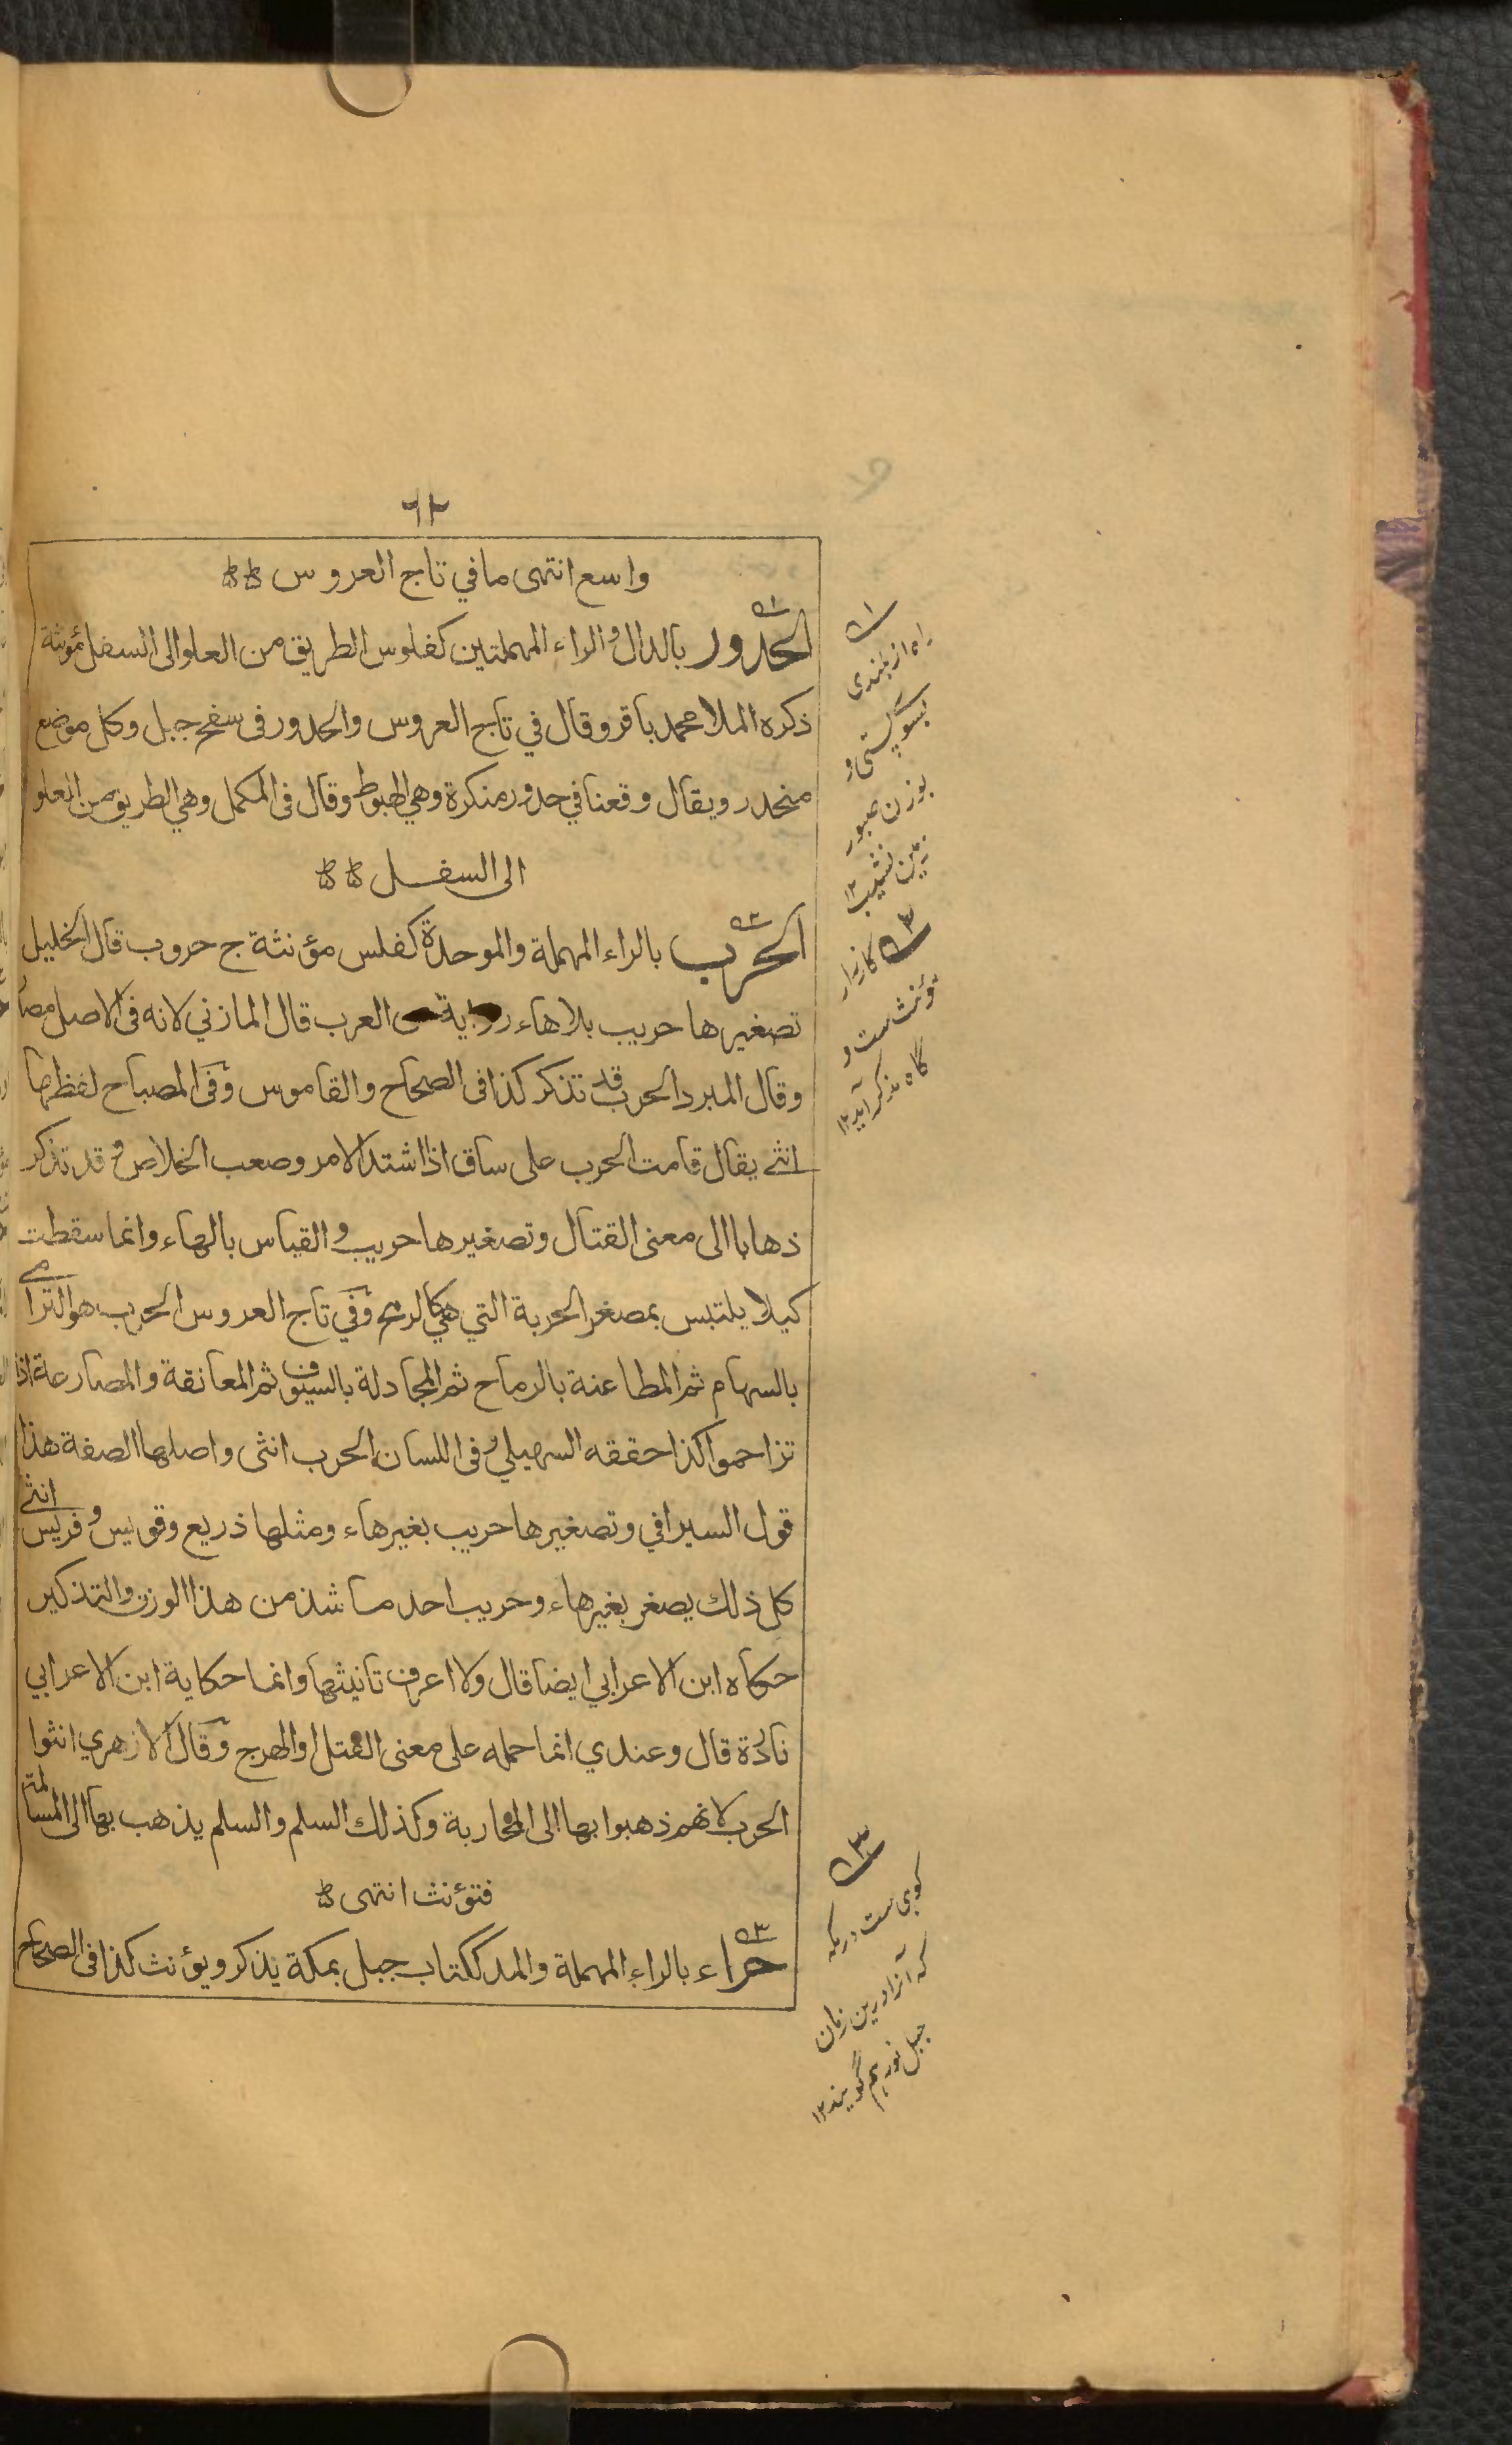 ٦٢
واسع انتهى ما في تاج العروس
الحدور بالدال والراء المهملتين كفلوس الطريق من العلو الى السفل مؤنثة
ذكره الملا محمد باقر وقال في تاج العروس والحدور فى سفح جبل وكل موضع
منحدر ويقال وقعنا في حدور منكرة وهي الهبوط وقال فى المكمل وهي الطريق من العلو
الى السفل
الحرب بالراء المهملة والموحدة كفلس مؤنثة ج حروب قال الخليل
تصغيرها حريب بلا هاء رواية العرب قال المازني لانه فى الاصل مصد
وقال المبرد الحرب قد تذكر كذا فى الصحاح والقاموس وفى المصباح لفظها
انثى يقال قامت الحرب على ساق اذا اشتد الامر وصعب الخلاص وقد تذكر
ذهابا الى معنى القتال وتصغيرها حريب والقياس بالهاء وانما سقطت
كيلا يلتبس بمصغر الحربة التي هي كالرمح وفي تاج العروس الحرب هو الترامى
بالسهام ثم المطاعنة بالرماح ثم المجادلة بالسيوف ثم المعانقة والمصارعة اذا
تزاحموا كذا حققه السهيلي وفى اللسان الحرب انثى واصلها الصفة هذا
قول السيرافي وتصغيرها حريب بغير هاء ومثلها ذريع وقويس وفريس انثى
كل ذلك يصغر بغير هاء وحريب احد ما شذ من هذا الوزن والتذكير
حكاه ابن الاعرابي ايضا قال ولا اعرف تانيثها وانما حكاية ابن الاعرابي
نادرة قال وعندي انما حمله على معنى القتل او الهرج وقال الازهري انثوا
الحرب لانهم ذهبوا بها الى المحاربة وكذلك السلم والسلم يذهب بها الى المسالمة
فتؤنث انتهى
حراء بالراء المهملة والمد ككتاب جبل بمكة يذكر ويؤنث كذا فى الصحاح
١
راه از بلندی
بسوی پستی و
بوزن صبور
زمین نشیب ١٢
٢ کارزار
مؤنث ست و
گاه مذکر آید ١٢
٣
کوهی ست در مکه
که آنرا درین زمان
جبل نور هم گویند ١٢